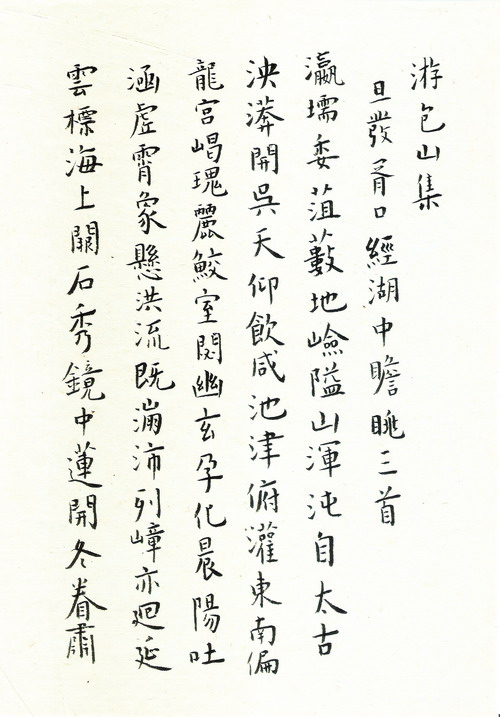 游包山集
旦發胥口經湖中瞻眺三首
瀛壖委菹藪地嶮隘山渾沌自太古
泱漭開吳天仰飲咸池津俯灌東南偏
龍宮嵑瑰麗鮫室閟幽玄孕化晨陽吐
涵虛霄象懸洪流既滿沛列嶂亦廻延
雲標海上石秀鏡中蓮開冬眷肅